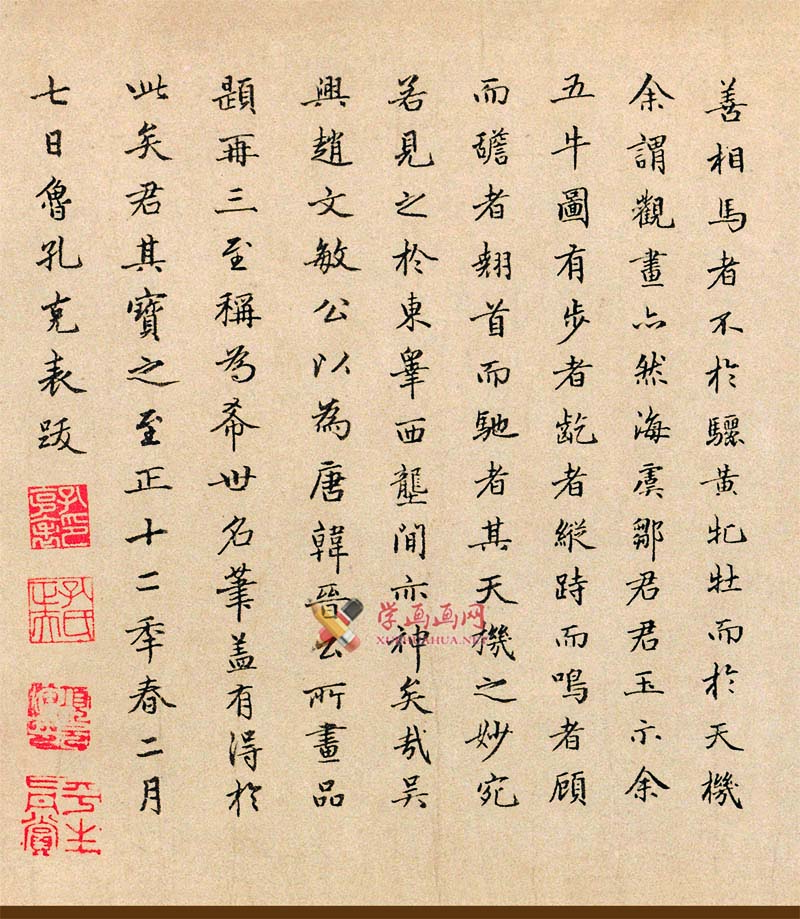 善相馬者不於驪黃牝牡而於天機
余謂觀畫亦然海虞鄒君君玉示余
五牛圖有步者齕者縱跱而鳴者顧
而者翹首而馳者其天機之妙宛
若見之於東皋西壟間亦神矣哉吳
興趙文敏公以為唐韓晉公所畫品
題再三至稱為希世名筆蓋有得於
此矣君其寶之至正十二季春二月
七日魯孔克表跋
平生真賞
学画画网
XUEHUAHUA.NET